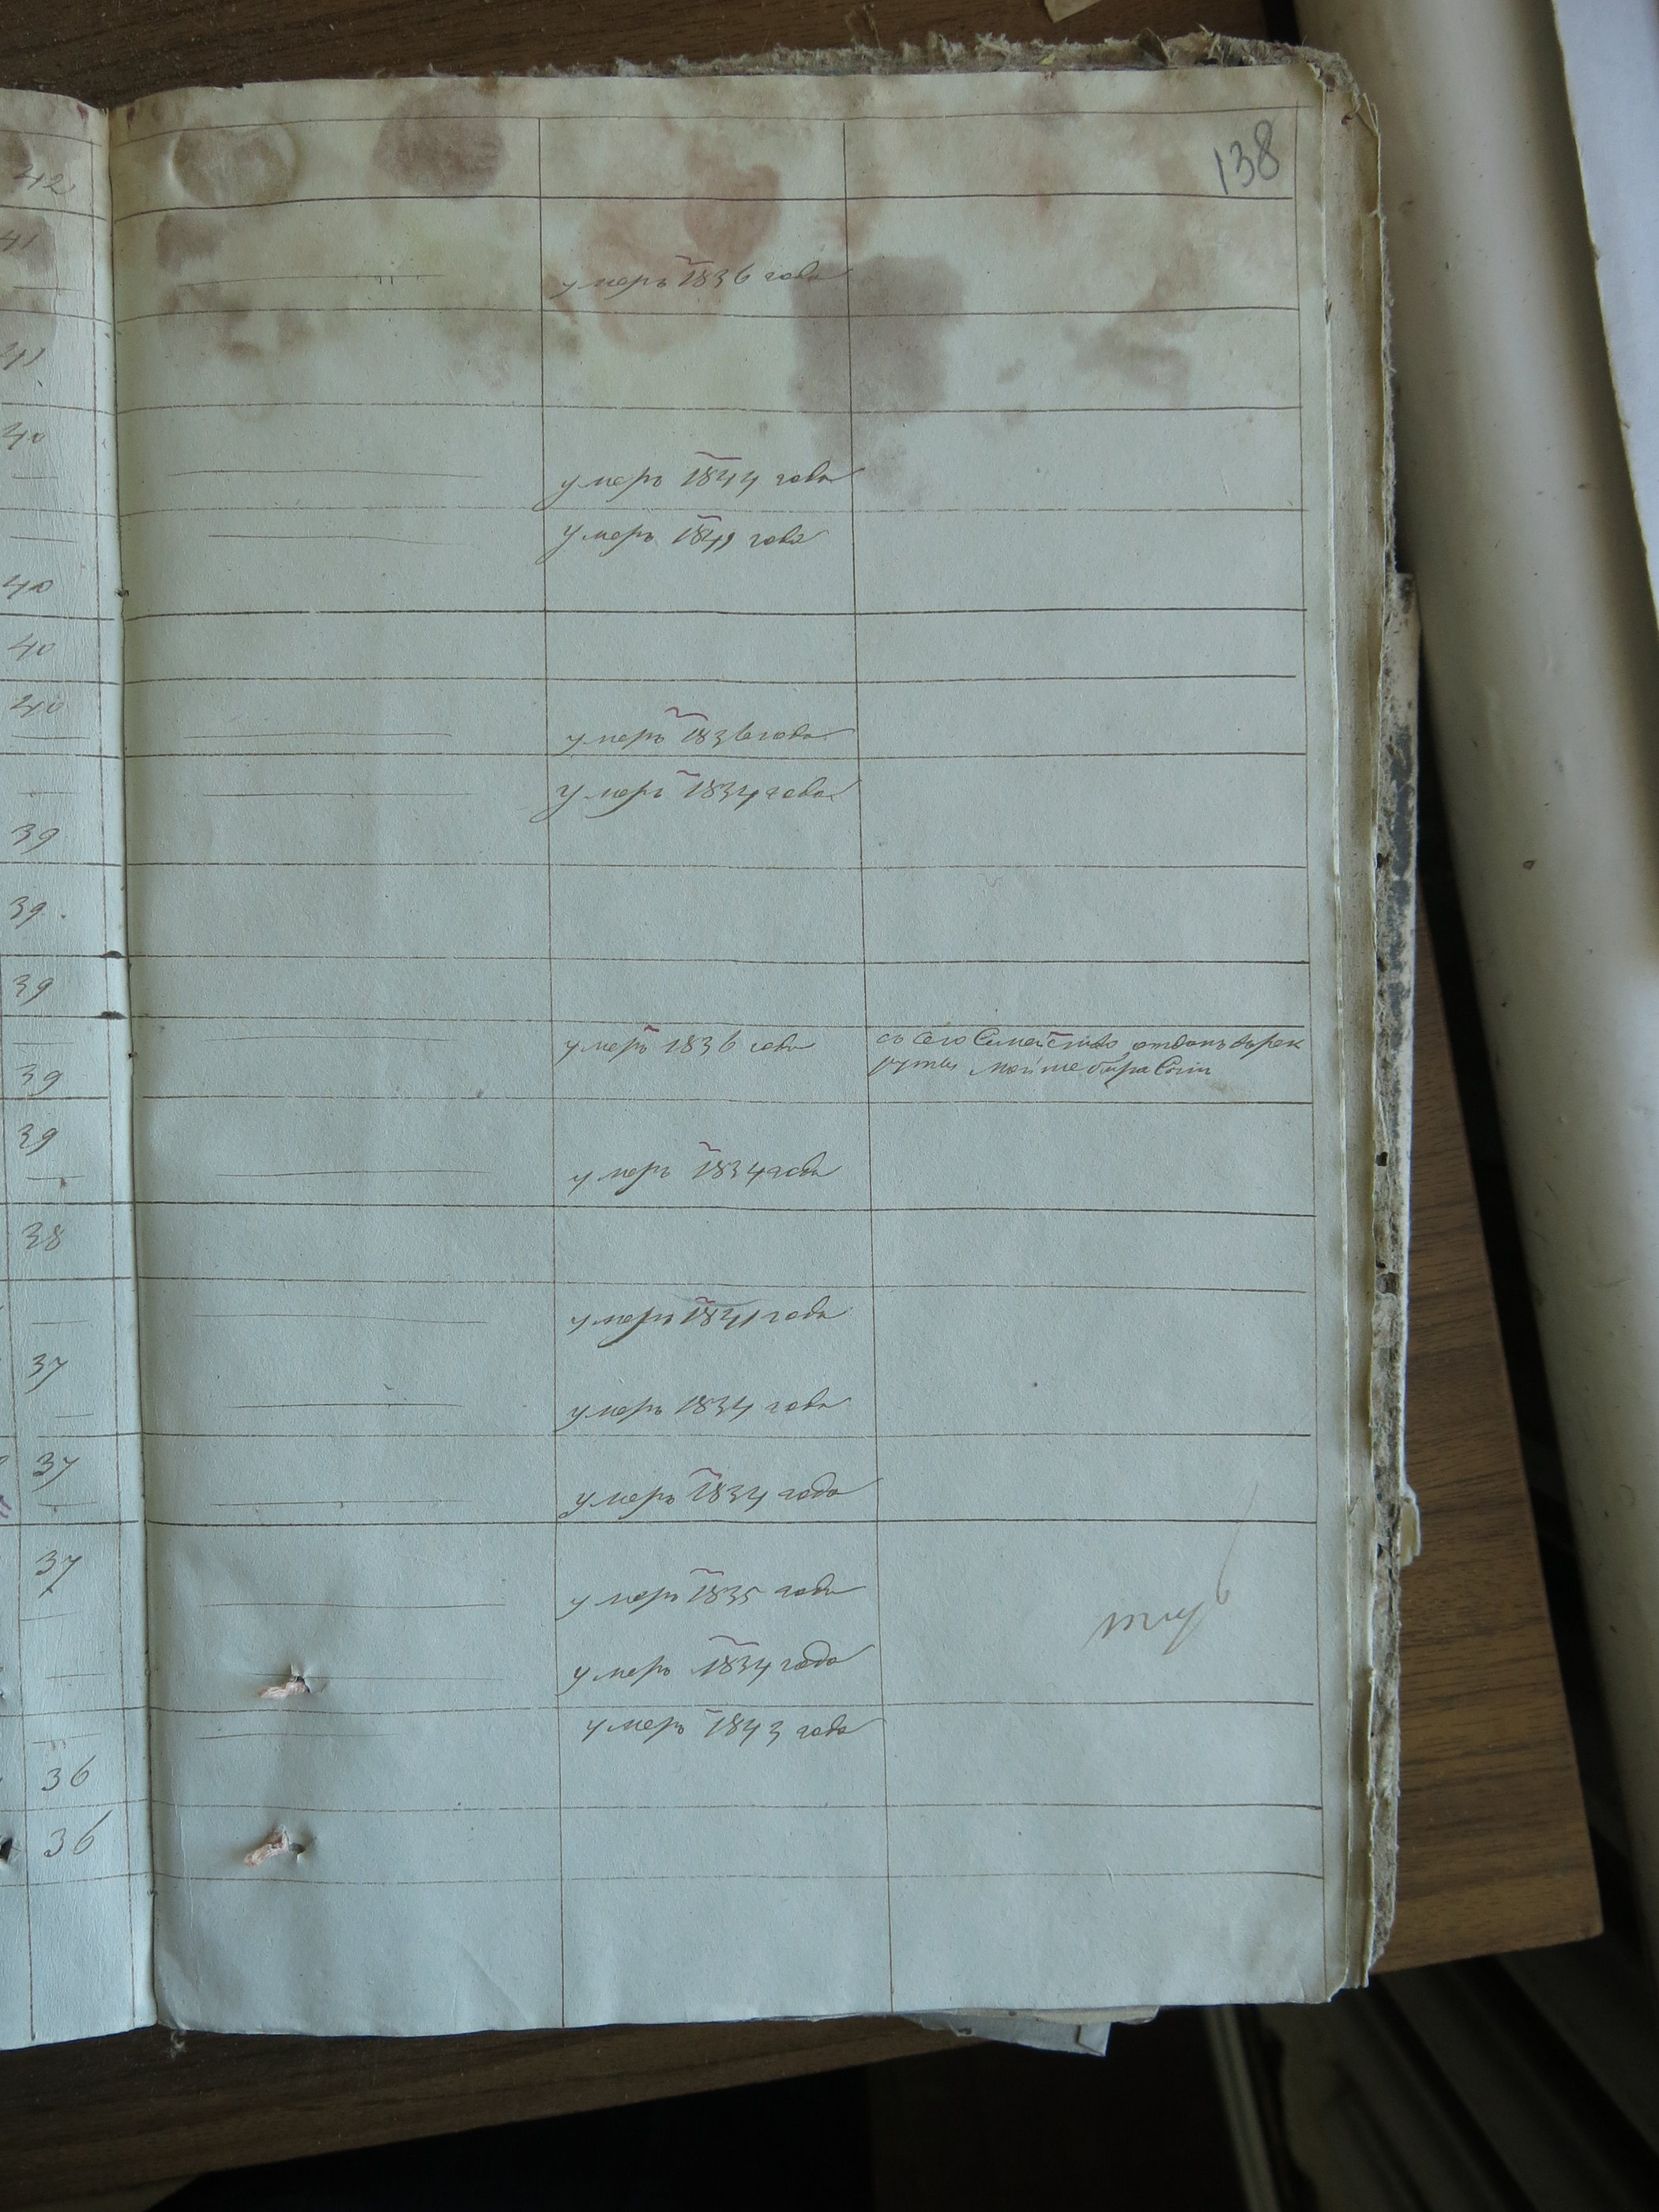 138
42
41
умеръ 1836 года
41
40
умеръ 1844 года
умеръ 1841 года
40
40
40
умеръ 1836 года
умеръ 1834 года
39
39
39
умеръ 1836 года
съ сего Семейства отданъ въ рек
руты
39
39
умеръ 1834 года
38
умеръ 1841 года
37
умеръ 1834 года
37
умеръ 1834 года
37
умеръ 1835 года
умеръ 1834 года
умеръ 1843 года
36
36